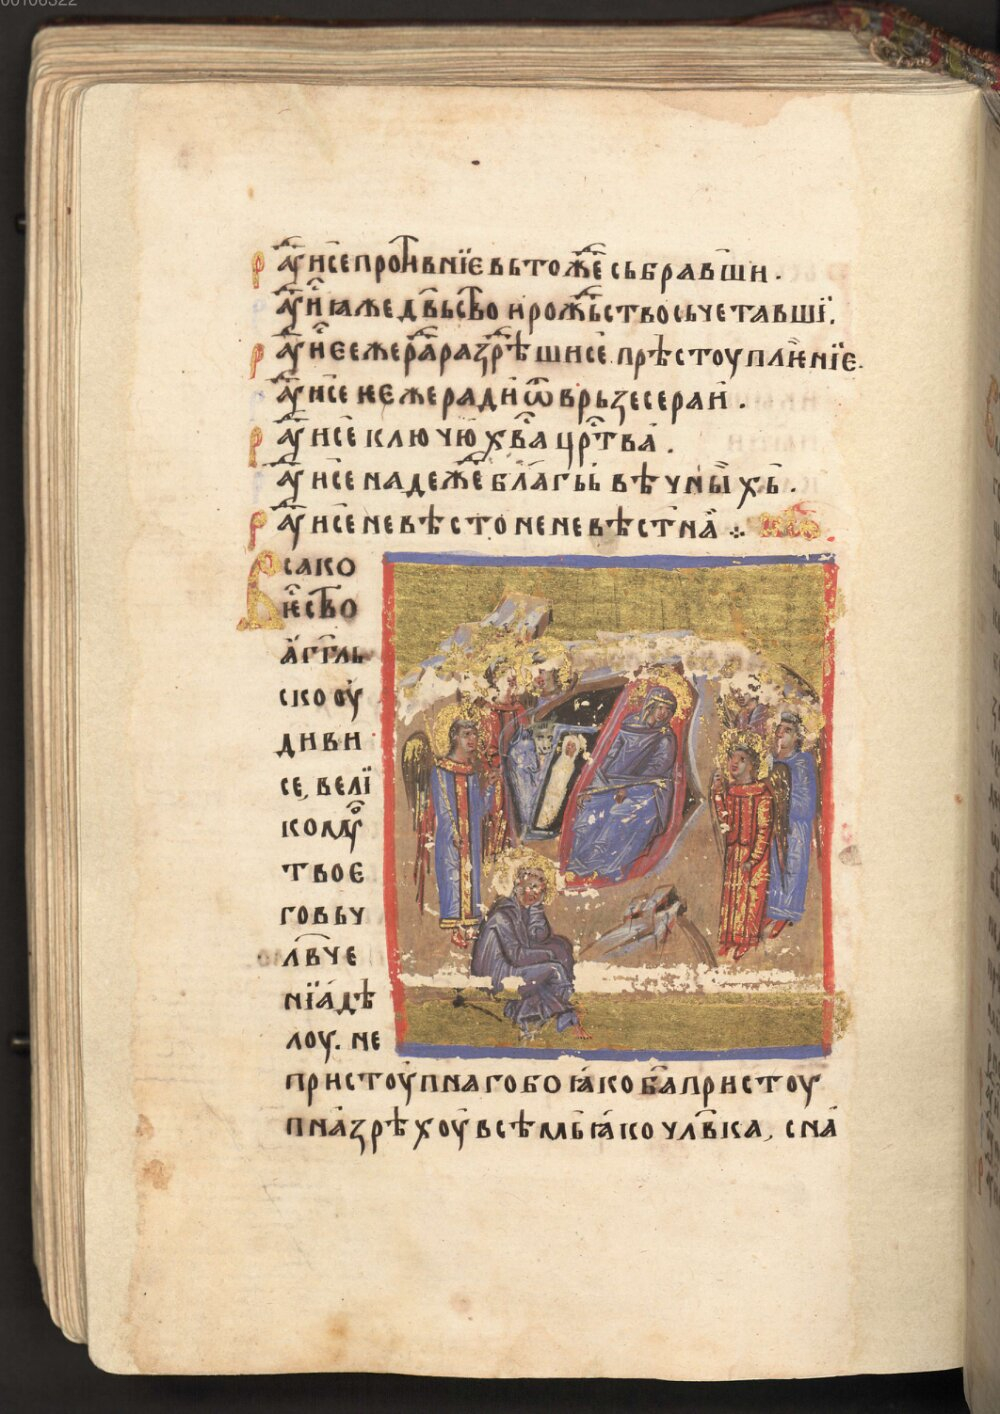 ра҃уисе противнїе вь тожⷣе сьбравши .
ра҃уи ꙗже двⷭ҇ьство и рожⷣьство сьчетавші .
ра҃уи еежеради разрѣшисе прѣстоупленїе .
ра҃уисе кеже ради ѿврьзесе раи .
ра҃уисе ключю х҃ва црⷭ҇тва .
ра҃уисе надежⷣе бл҃гыь вѣчныхь .
ра҃уисе невѣсто неневѣстнаа ⁘ ик҃ос
Всако
ес҇тво
агг҃ль
ско оу
диви
се, велі
комⷹ
твоего
вьч
лв҃че
нїа дѣ
лоу . не
пристоупнаго бо ꙗко б҃а пристоу
пна зрѣхоу всѣмь ꙗко чл҃вка, с на